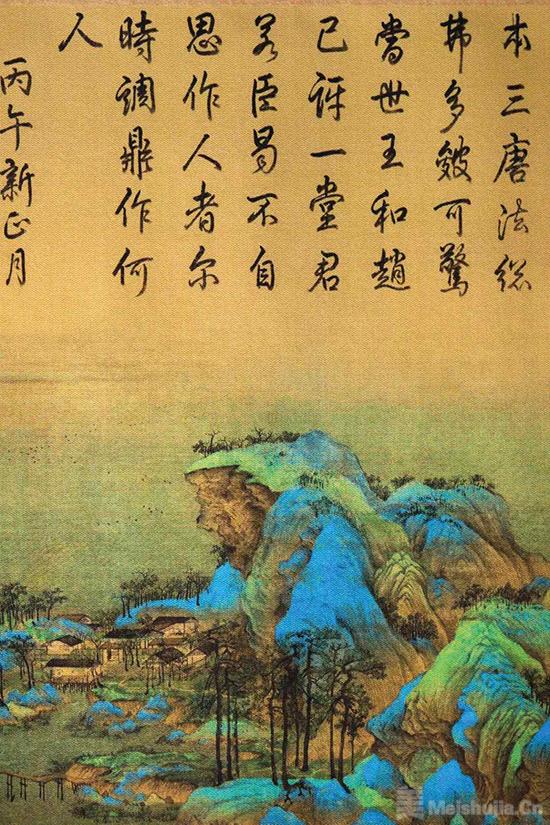 本三唐法總
弗多皴可驚
當世王和趙
已訝一堂君
若臣曷不自
思作人者尔
時調鼎作何
人
丙午新正月
美 Meishujia.Cn